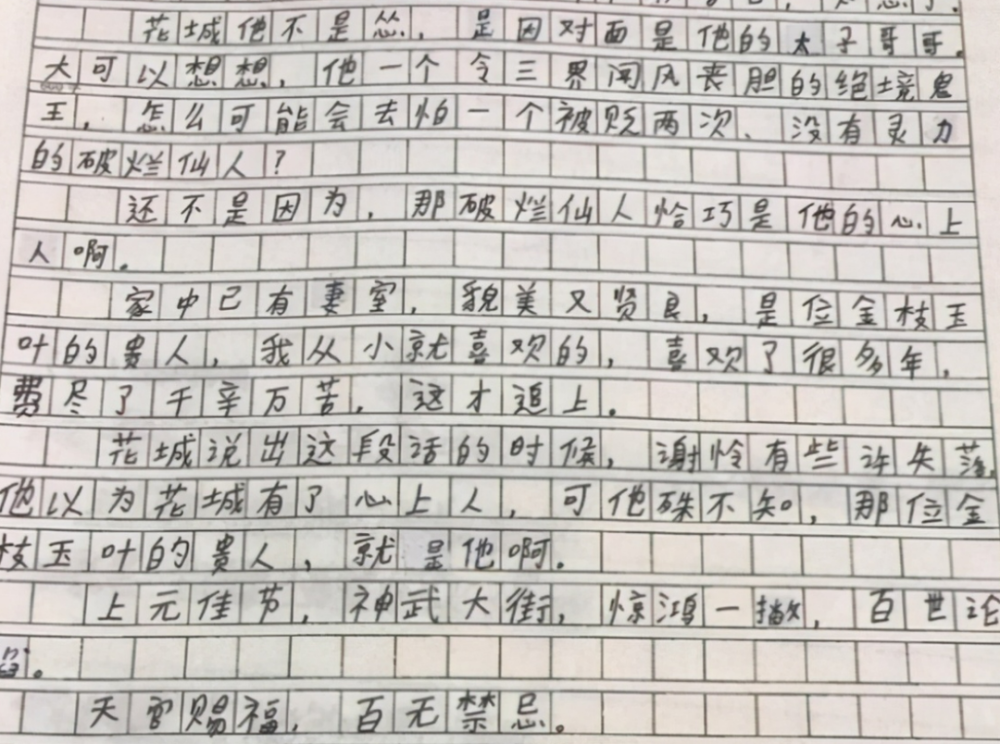 花城他不是怂，是因对面是他的太子哥哥。
大可以想想，他一个令三界闻风丧胆的绝境鬼
王，怎么可能会去怕一个被贬两次、没有灵力
的破烂仙人？
还不是因为，那破烂仙人恰巧是他的心上
人啊。
家中已有妻室，貌美又贤良，是位金枝玉
叶的贵人，我从小就喜欢的，喜欢了很多年，
费尽了千辛万苦，这才追上。
花城说出这段话的时候，谢怜有些许失落，
他以为花城有了心上人，可他殊不知，那位金
枝玉叶的贵人，就是他啊。
上元佳节，神武大街，惊鸿一撇，百世沦
天官赐福，百无禁忌。